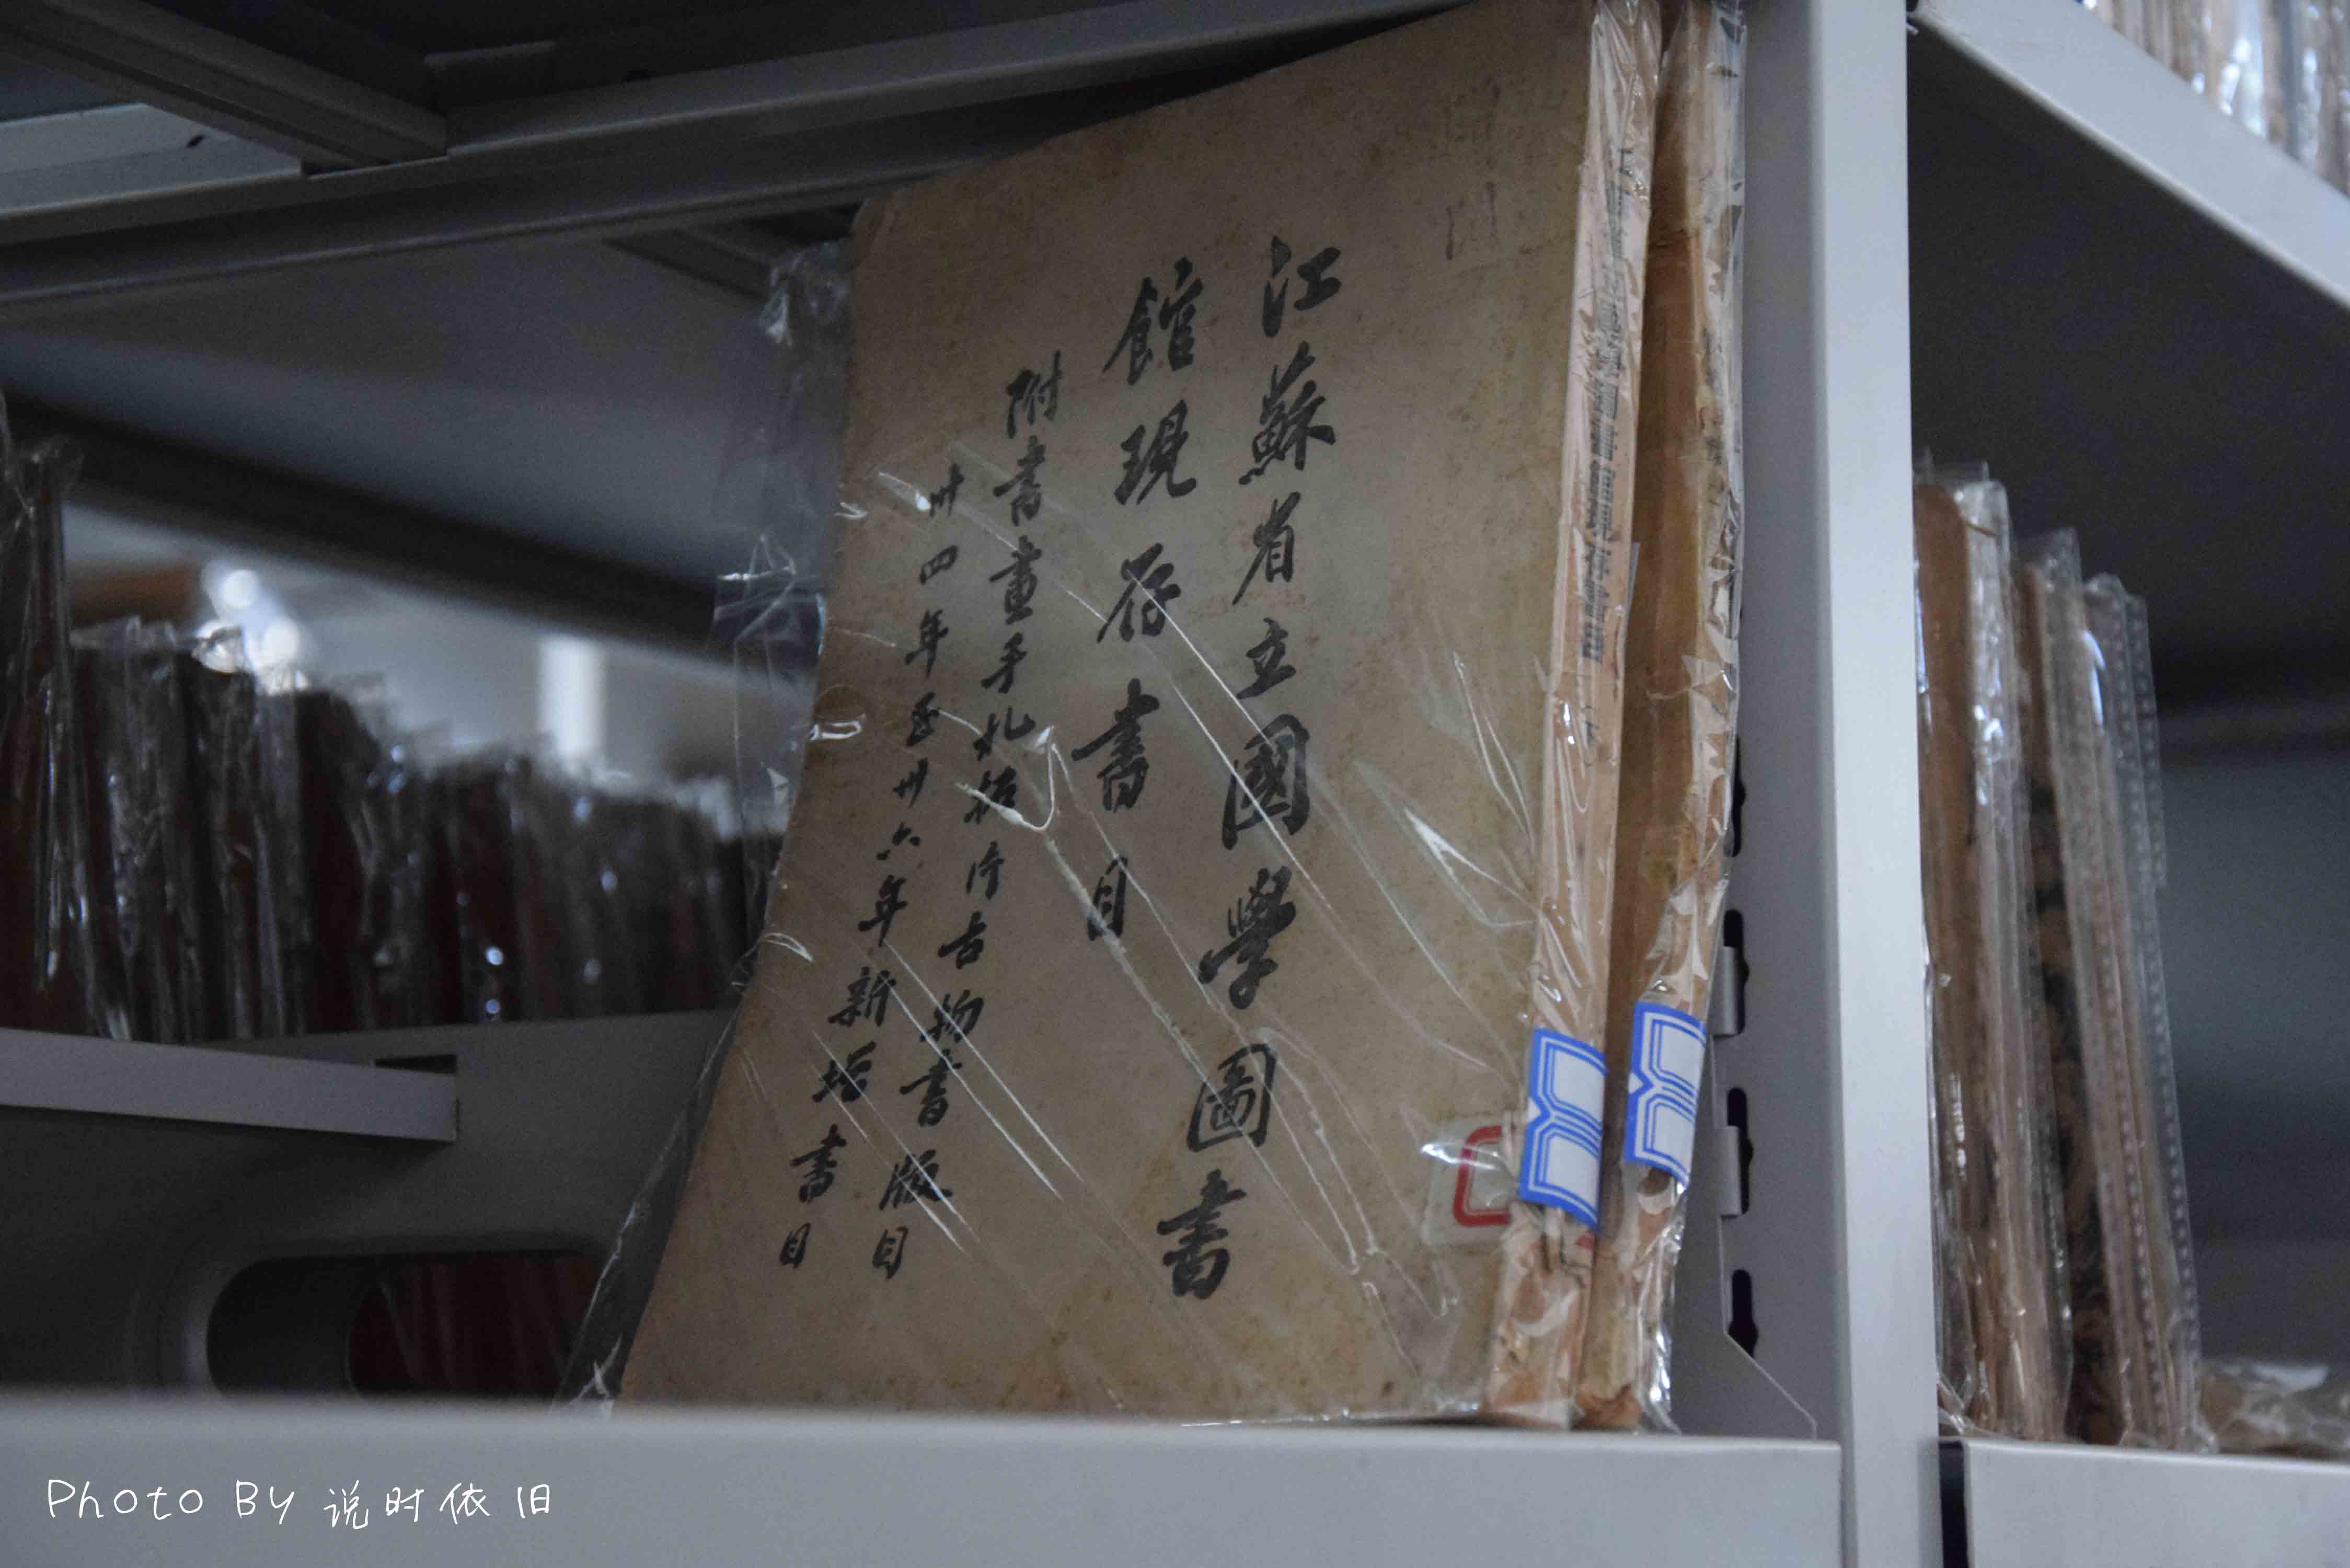 江蘇省立國學圖書
館現存書目
附書畫手札拓片古物書版目
卅四年至卅六年新增書目
Photo By 说时依旧